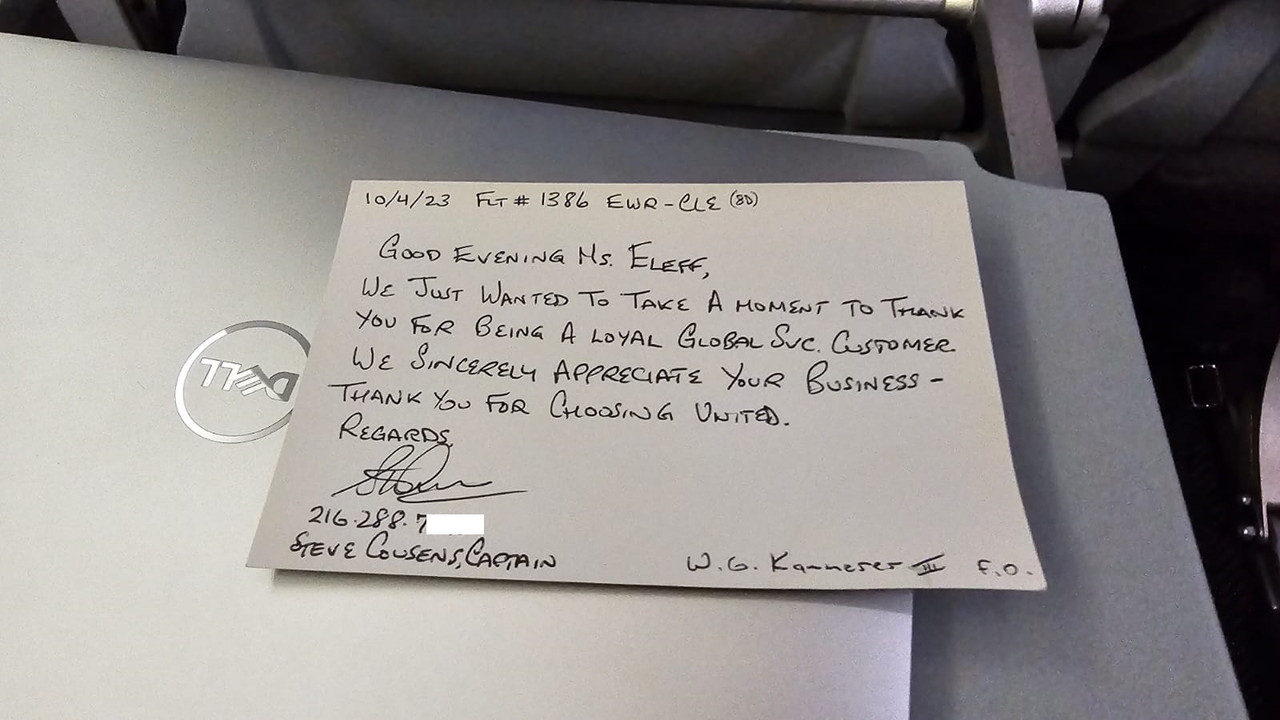 10/4/23 FLT # 1386 EWR-CLE (8D)
GOOD EVENING MS. ELEFF,
WE JUST WANTED TO TAKE A MOMENT TO THANK
YOU FOR BEING A LOYAL GLOBAL SVC. CUSTOMER.
WE SINCERELY APPRECIATE YOUR BUSINESS -
THANK YOU FOR CHOOSING UNITED.
REGARDS,
216.288.7
STEVE COUSENS, CAPTAIN
W.G. Kammerer III F.O.
DELL